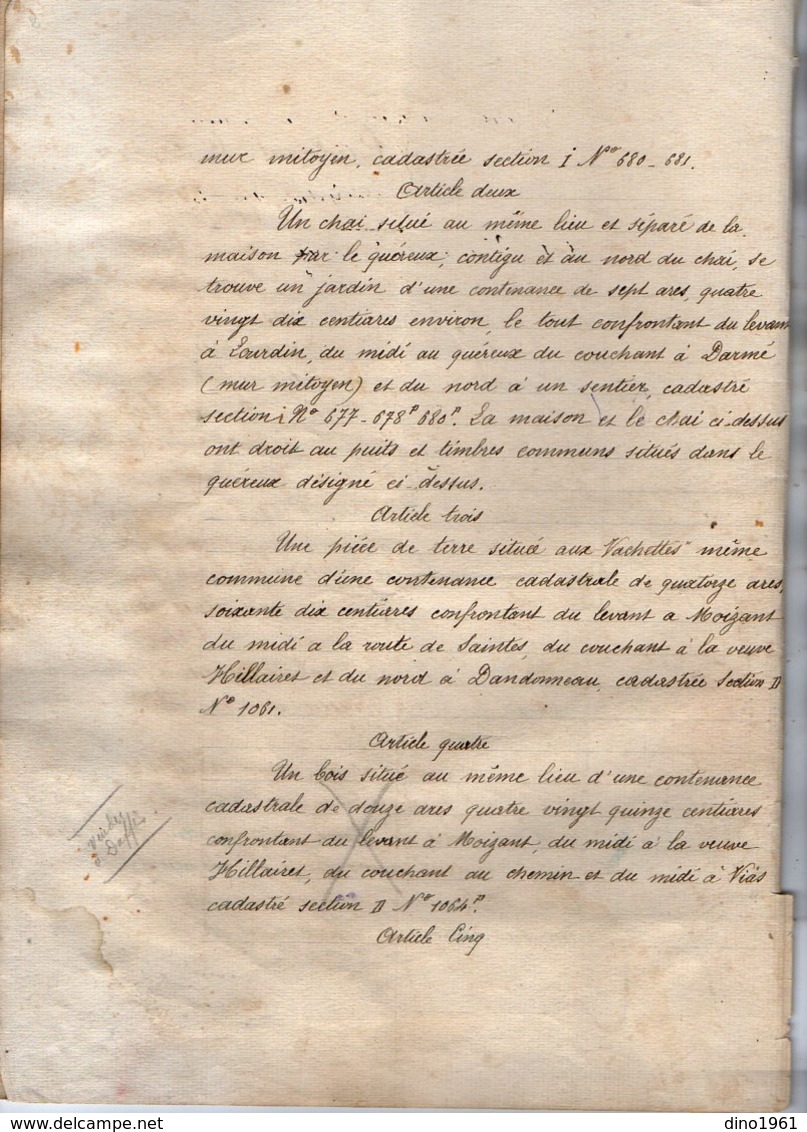 mur mitoyen, cadastrée section I Nos 680 - 681.
Article deux
Un chai situé au même lieu et séparé de la
maison par le quéreux; contigu et au nord du chai, se
trouve un jardin d'une contenance de sept ares, quatre
vingt dix centiares environ, le tout confrontant du levant
à Lourdin, du midi au quéreux du couchant à Darmé
(mur mitoyen) et du nord à un sentier, cadastré
section I No 677 - 678p 680p. La maison et le chai ci-dessus
ont droit au puits et timbres communs situés dans le
quéreux désigné ci-dessus.
Article trois
Une pièce de terre située aux Vachettes" même
commune d'une contenance cadastrale de quatorze ares,
soixante dix centiares confrontant du levant a Moizant
du midi a la route de Saintes, du couchant à la veuve
Hillairet et du nord à Dandonneau, cadastrée section D
No 1061.
Article quatre
Un bois situé au même lieu d'une contenance
cadastrale de douze ares quatre vingt quinze centiares
confrontant du levant à Moizant, du midi à la veuve
Hillairet, du couchant au chemin et du midi à Viàs
cadastré section D No 1064p.
Article Cinq
dino1961